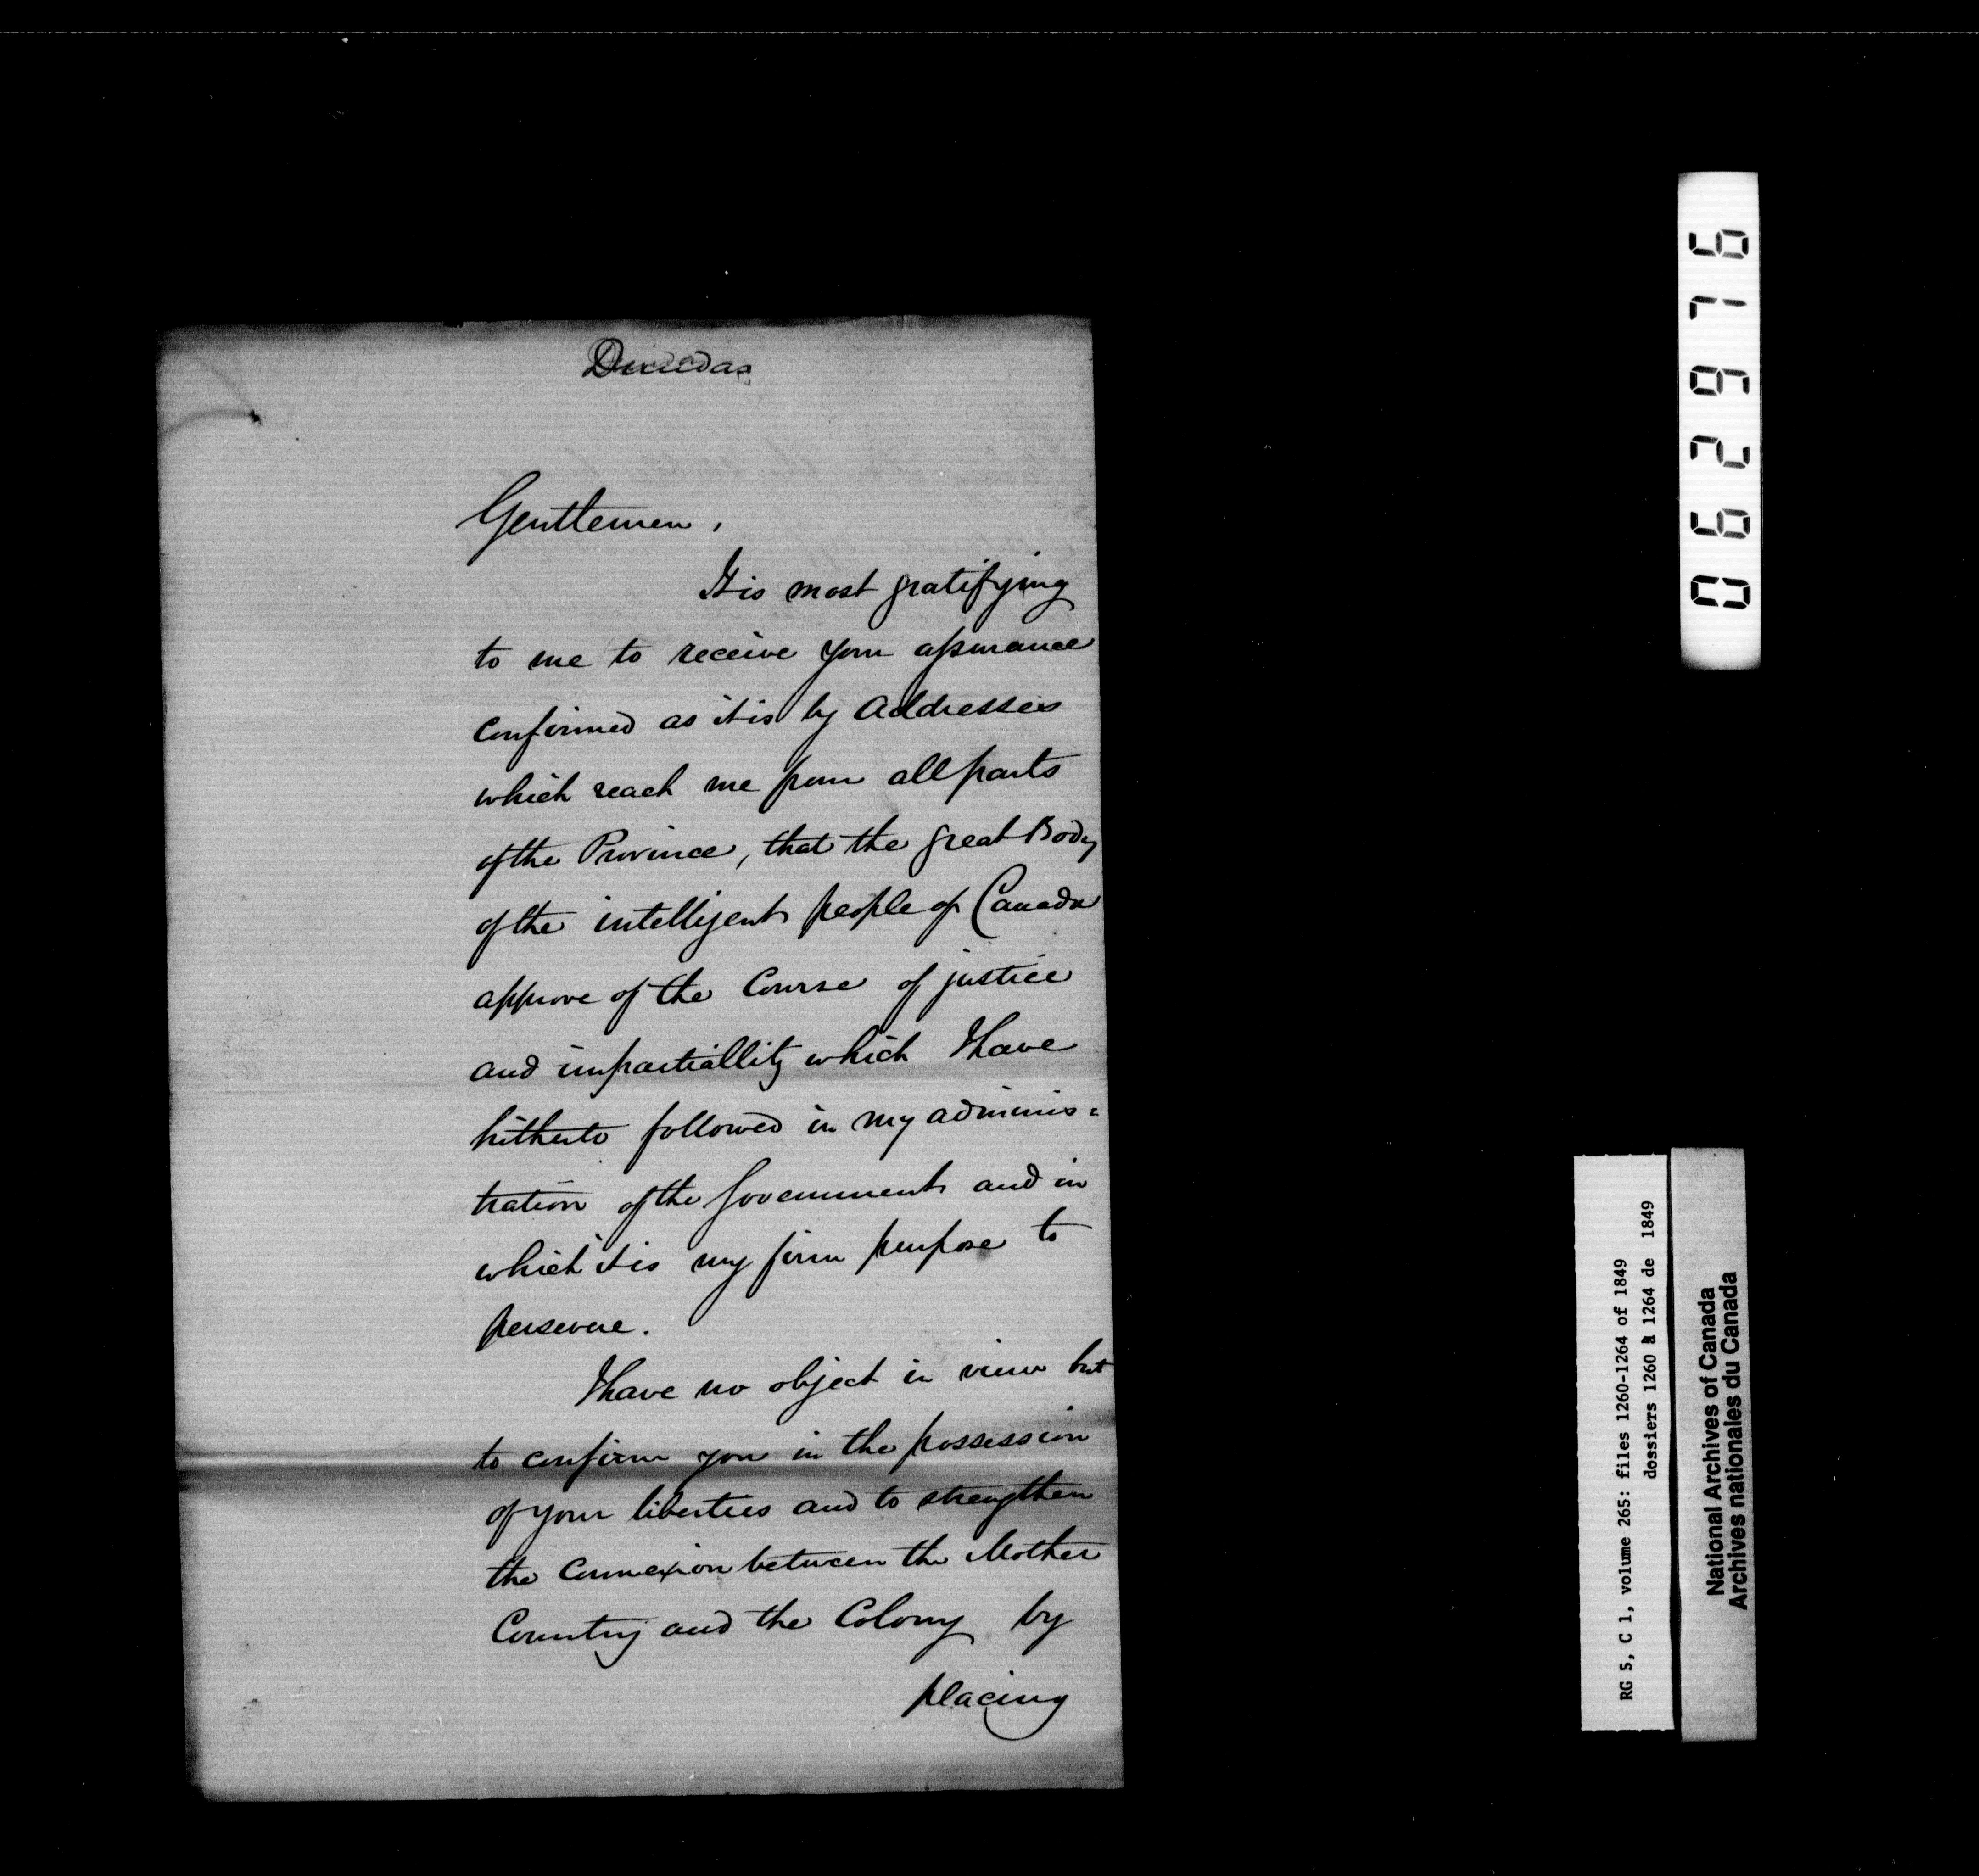 Dundas
Gentlemen,
It is most gratifying
to me to receive your assurance
confirmed as it is by Addresses
which reach me from all parts
of the Province, that the great Body
of the intelligent people of Canada
approve of the Course of justice
and impartiallity which I have
hitherto followed in my adminis=
tration of the Government and in
which it is my firm purpose to
persevere.
I have no object in view but
to confirm you in the possession
of your liberties and to strengthen
the Connexion between the Mother
Country and the Colony by
placing
062976
RG 5, C 1, volume 265: files 1260-1264 of 1849
dossiers 1260 à 1264 de 1849
National Archives of Canada
Archives nationales du Canada